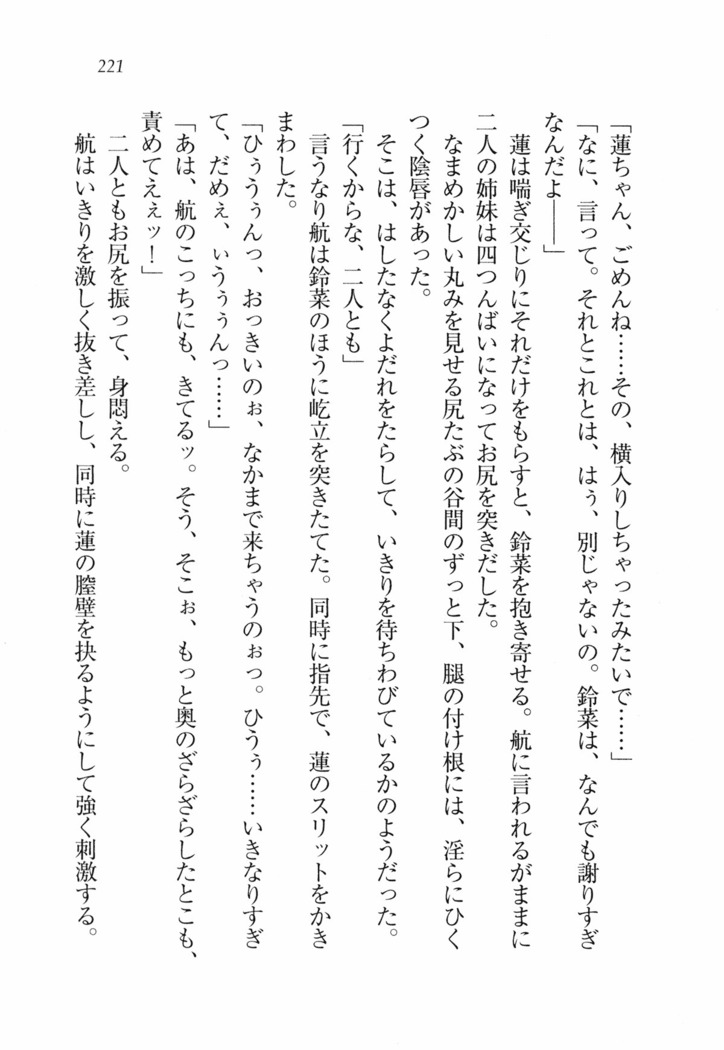 221
「蓮ちゃん、ごめんね……その、横入りしちゃったみたいで……」
「なに、言って。それとこれとは、はぅ、別じゃないの。鈴菜は、なんでも謝りすぎ
なんだよ――」
蓮は喘ぎ交じりにそれだけをもらすと、鈴菜を抱き寄せる。航に言われるがままに
二人の姉妹は四つんばいになってお尻を突きだした。
なまめかしい丸みを見せる尻たぶの谷間のずっと下、腿の付け根には、淫らにひく
つく陰唇があった。
そこは、はしたなくよだれをたらして、いきりを待ちわびているかのようだった。
「行くからな、二人とも」
言うなり航は鈴菜のほうに屹立を突きたてた。同時に指先で、蓮のスリットをかき
まわした。
「ひぅうぅんっ、おっきいのぉ、なかまで来ちゃうのぉっ。ひうぅ……いきなりすぎ
て、だめぇ、ぃうぅぅんっ……」
「あは、航のこっちにも、きてるッ。そう、そこぉ、もっと奥のざらざらしたとこも、
責めてえぇッ！」
二人ともお尻を振って、身悶える。
航はいきりを激しく抜き差しし、同時に蓮の膣壁を抉るようにして強く刺激する。